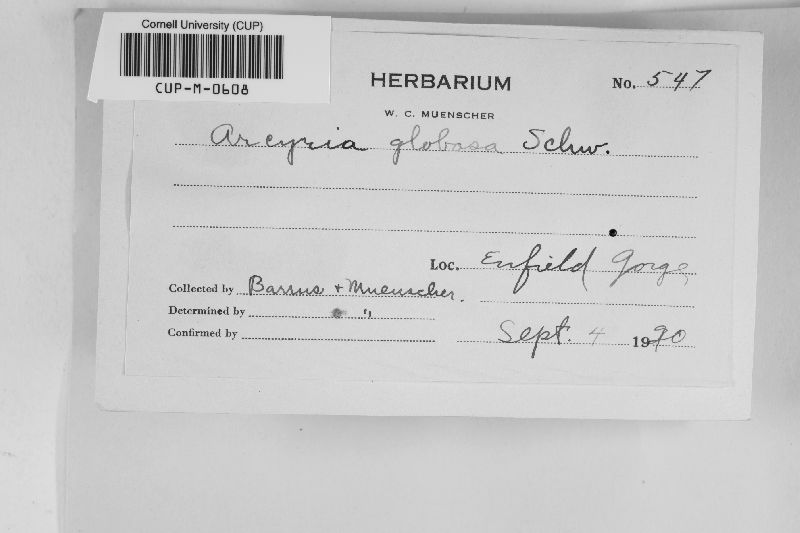 Cornell University (CUP)
CUP-M-0608
HERBARIUM
No. 547
W. C. MUENSCHER
Arcyria globosa Schw.
Loc. Enfield Gorge
Collected by Barrus + Muenscher.
Determined by " "
Confirmed by
Sept. 4 19